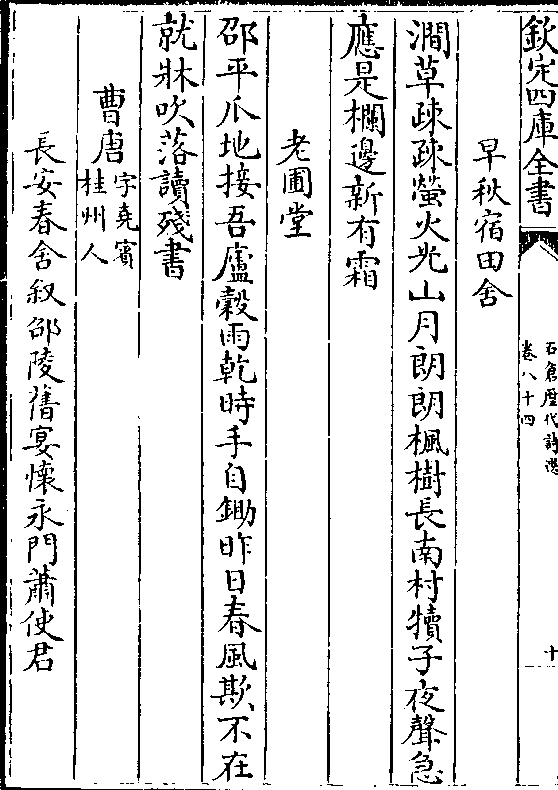 欽定四庫全書
石倉歷代詩選
卷八十四
十
早秋宿田舍
澗草疎疎螢火光山月朗朗楓樹長南村犢子夜聲急
應是欄邊新有霜
老圃堂
邵平爪地接吾廬穀雨乾時手自鋤昨日春風欺不在
就牀吹落讀殘書
曹唐字堯賓桂州人
長安春舍叙邵陵舊宴懷永門蕭使君